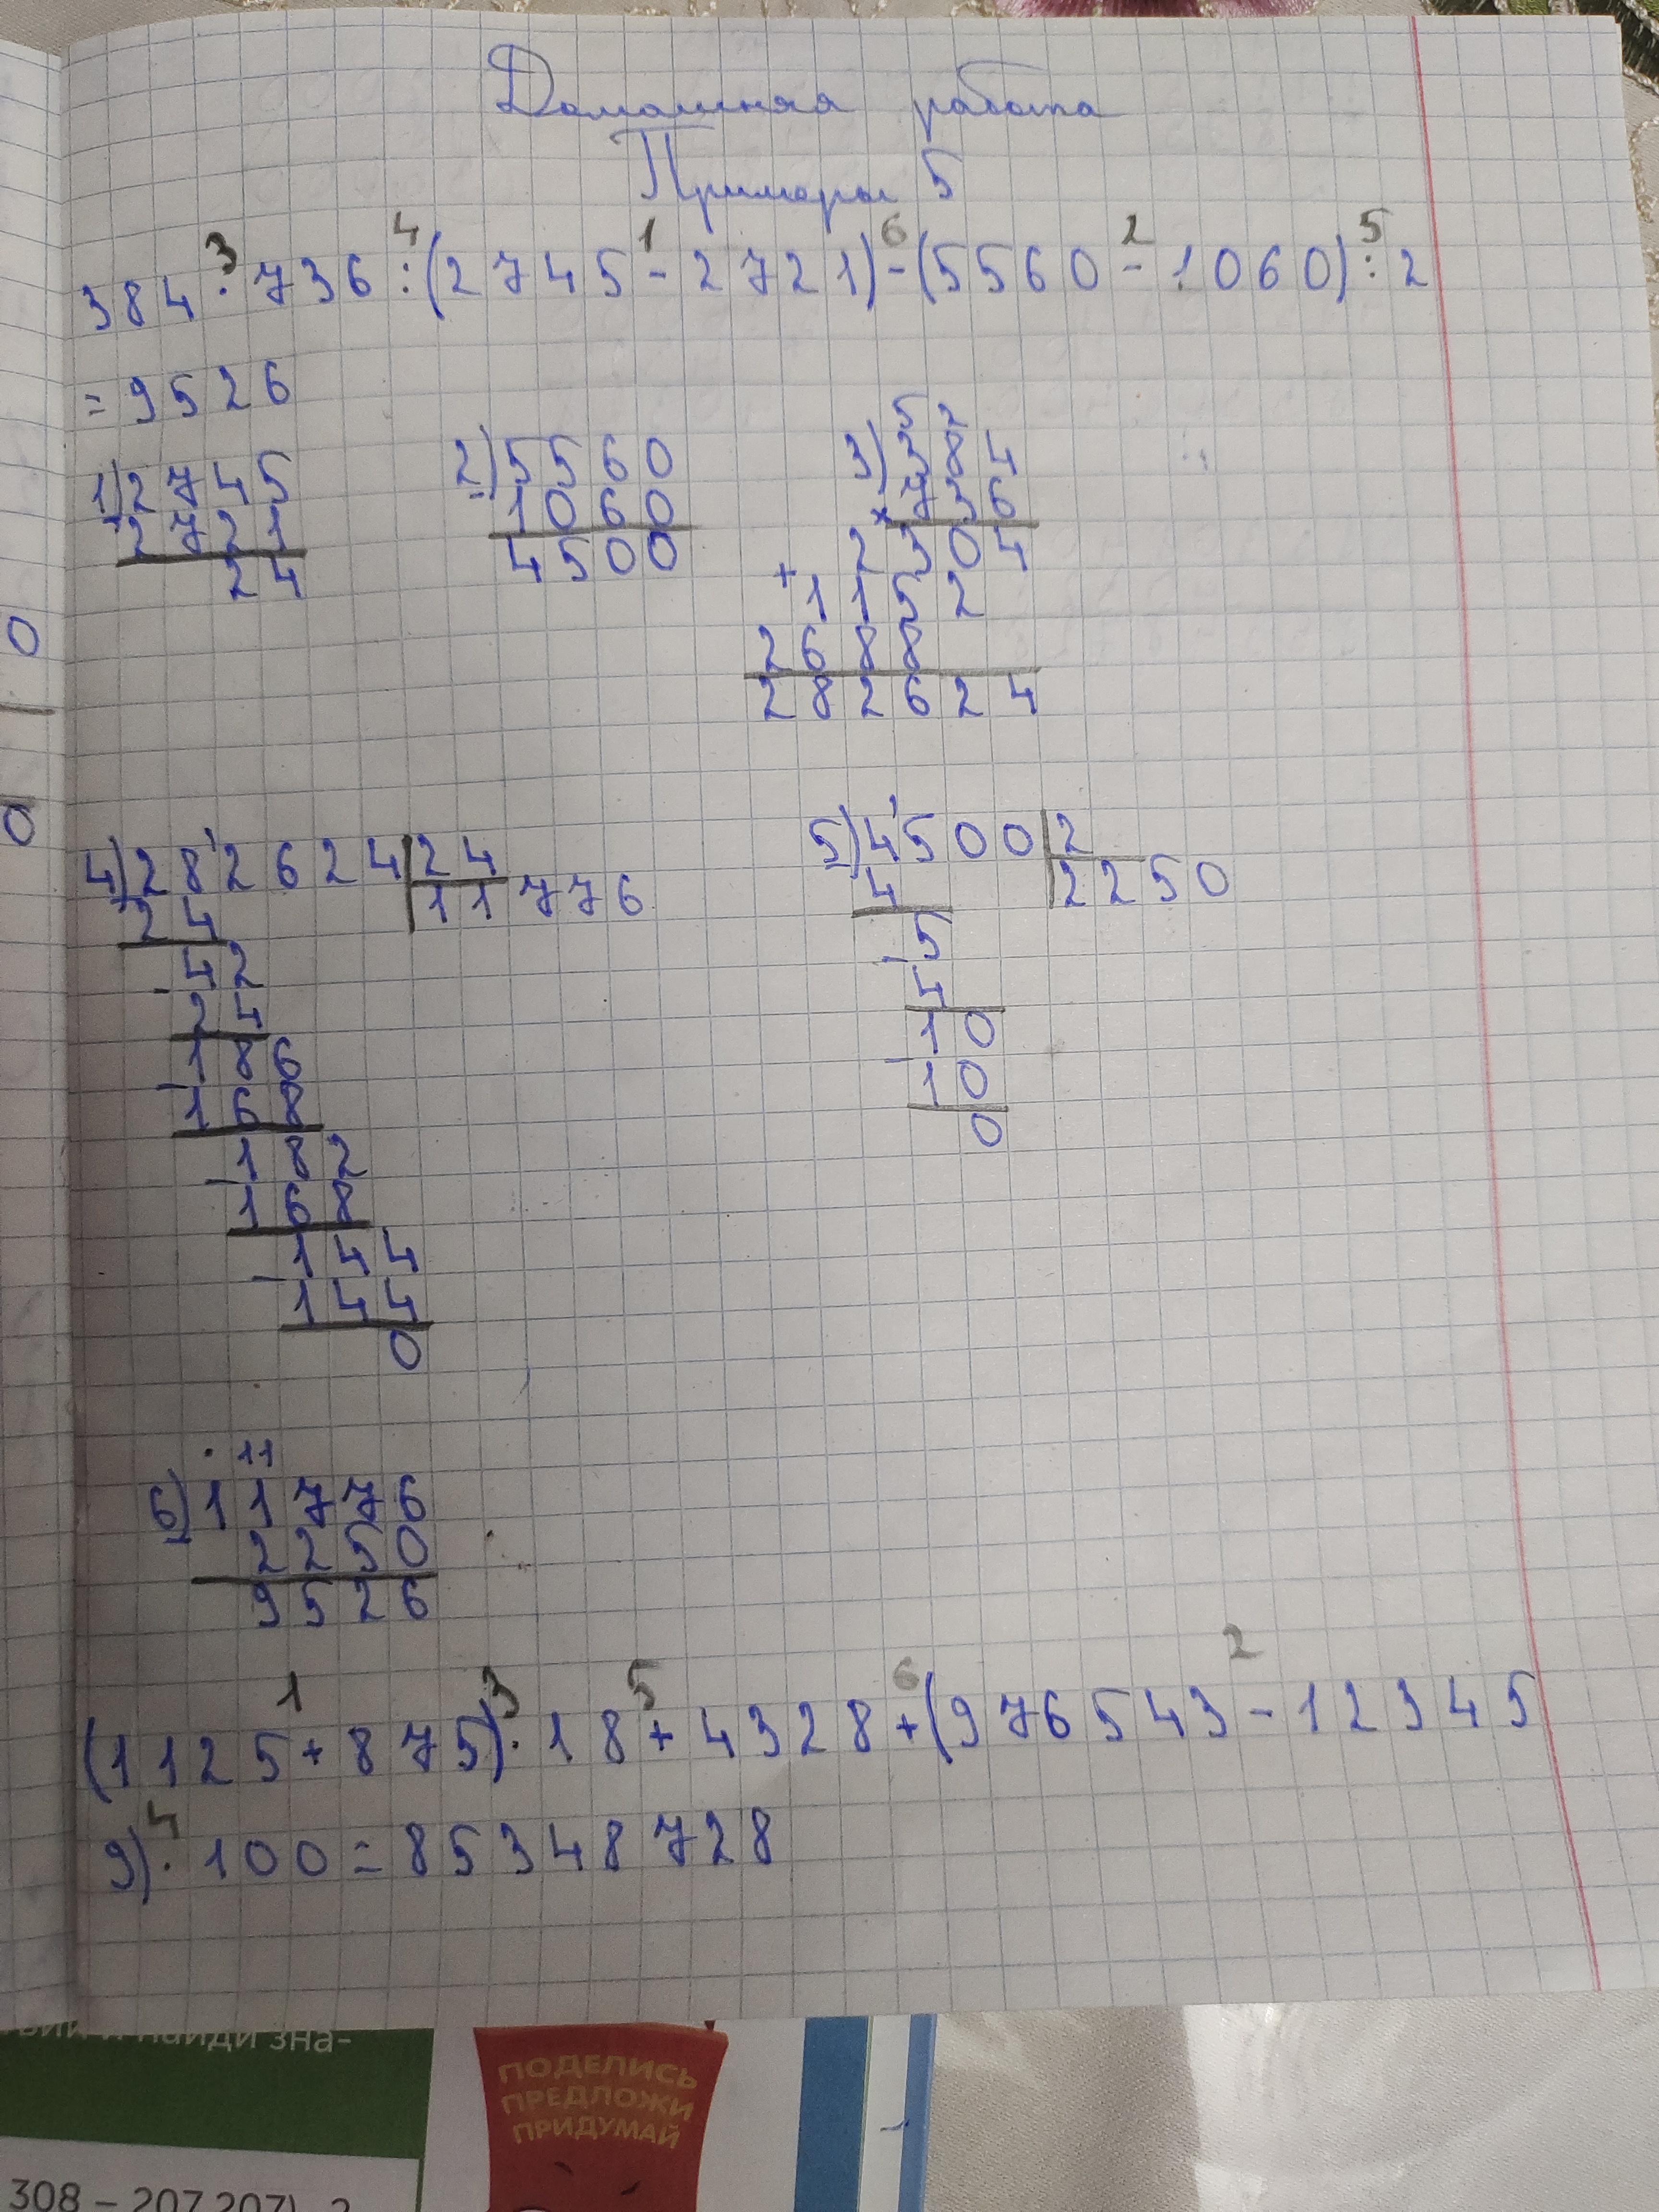 Домашняя работа
Примеры 5
3 4 1 6 2 5
384 · 736 : (2745 - 2721) - (5560 - 1060) : 2
= 9526
5 2
1) 2745 2) 5560 3) 384
- 2721 - 1060 × 736
24 4500 2304
+ 1152
2688
282624
4) 282624 | 24 5) 4500 | 2
- 24 11776 - 4 2250
- 42 - 5
24 4
- 186 - 10
168 10
- 182 0
168
- 144
144
0
· 11
6) 11776
- 2250
9526
1 3 5 6 2
(1125 + 875) · 18 + 4328 + (976543 - 12345
4
9) · 100 = 85348728
0
0
найди зна-
308 – 207 207)
ПОДЕЛИСЬ
ПРЕДЛОЖИ
ПРИДУМАЙ